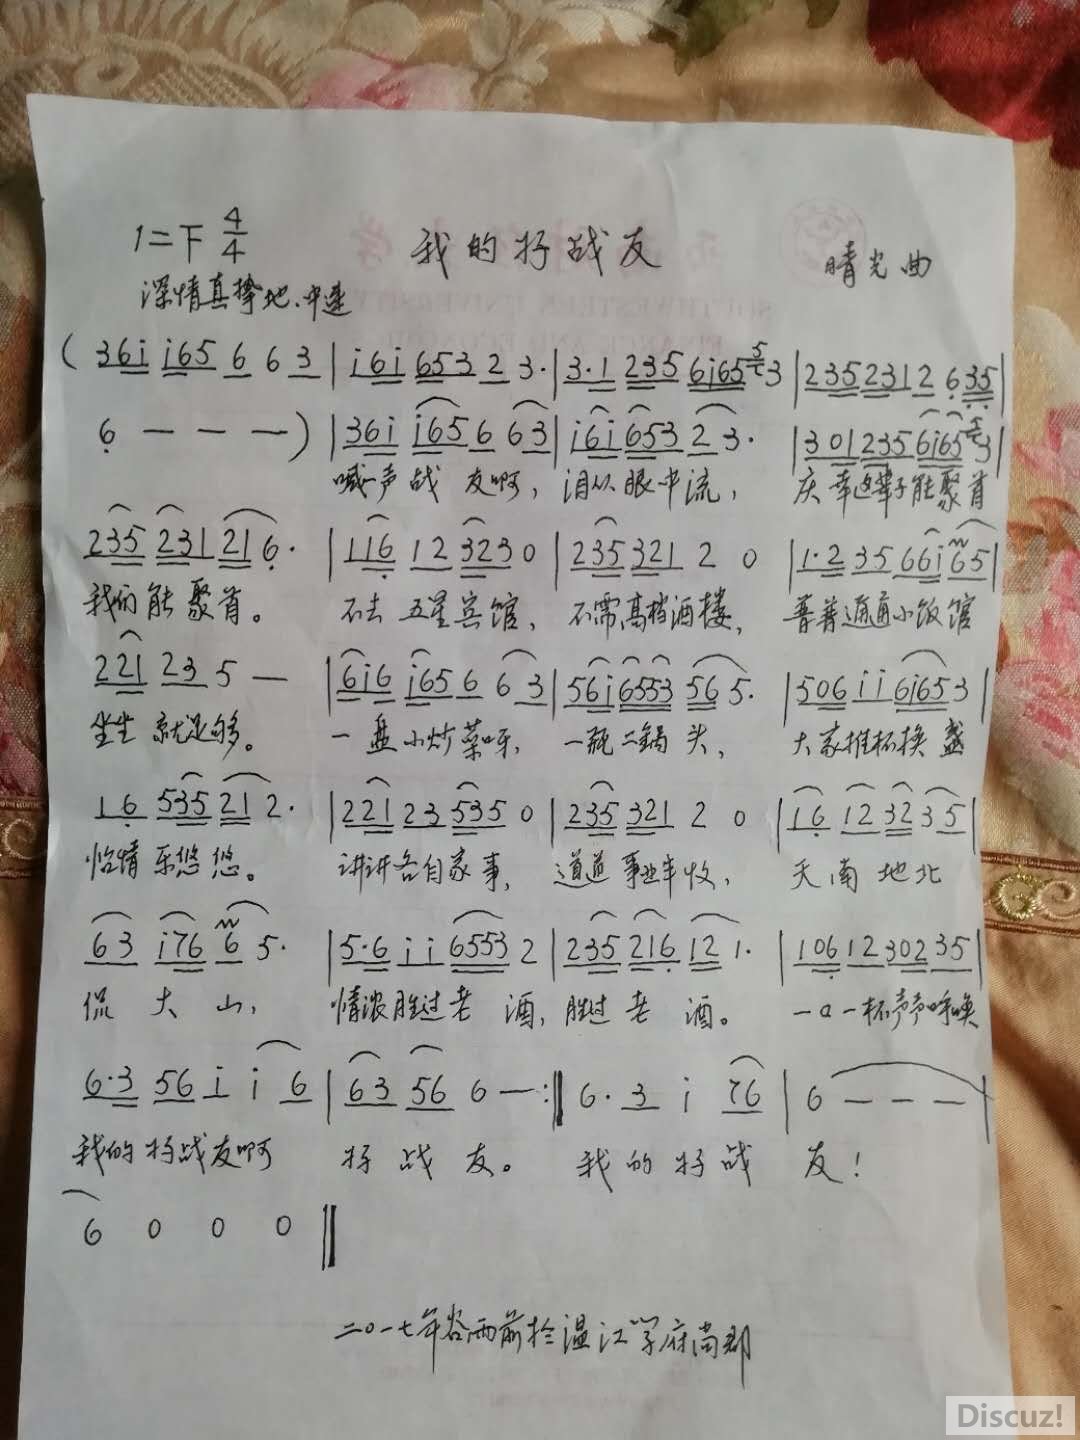 1=下 4/4 我的好战友 晴光 曲
深情真挚地、中速
( 36i i65 6 6 3 | i6i 653 2 3· | 3·1 235 6i65 5 3 | 235 231 2 6 35 |
6 — — — ) | 36i i65 6 63 | i6i 653 2 3· | 301 235 6i65 3 |
喊一声战 友啊, 泪从眼中流, 庆幸这辈子能聚首
235 231 21 6· | 116 12 323 0 | 235 321 2 0 | 1·2 35 66i 65 |
我们能聚首。 不去五星宾馆、不需高档酒楼, 普普通通小饭馆
221 23 5 — | 6i6 i65 6 63 | 56i 6553 56 5· | 506 ii 6i65 3 |
坐坐就足够。 一盘小炒菜呀, 一瓶二锅头, 大家推杯换盏
16 535 21 2· | 221 23 535 0 | 235 321 2 0 | 16 12 32 35 |
怡情乐悠悠。 讲讲各自家事, 道道事业丰收, 天南地北
63 i76 6 5· | 5·6 ii 6553 2 | 235 216 12 1· | 106 12 302 35 |
侃大山, 情浓胜过老酒, 胜过老酒。 一口一杯声声呼唤
6·3 56 i i 6 | 63 56 6 — :‖ 6· 3 i 76 | 6 — — — |
我的好战友啊 好战友。 我的好战友!
6 0 0 0 ‖
二〇一七年谷雨前于温江学府尚郡
Discuz!